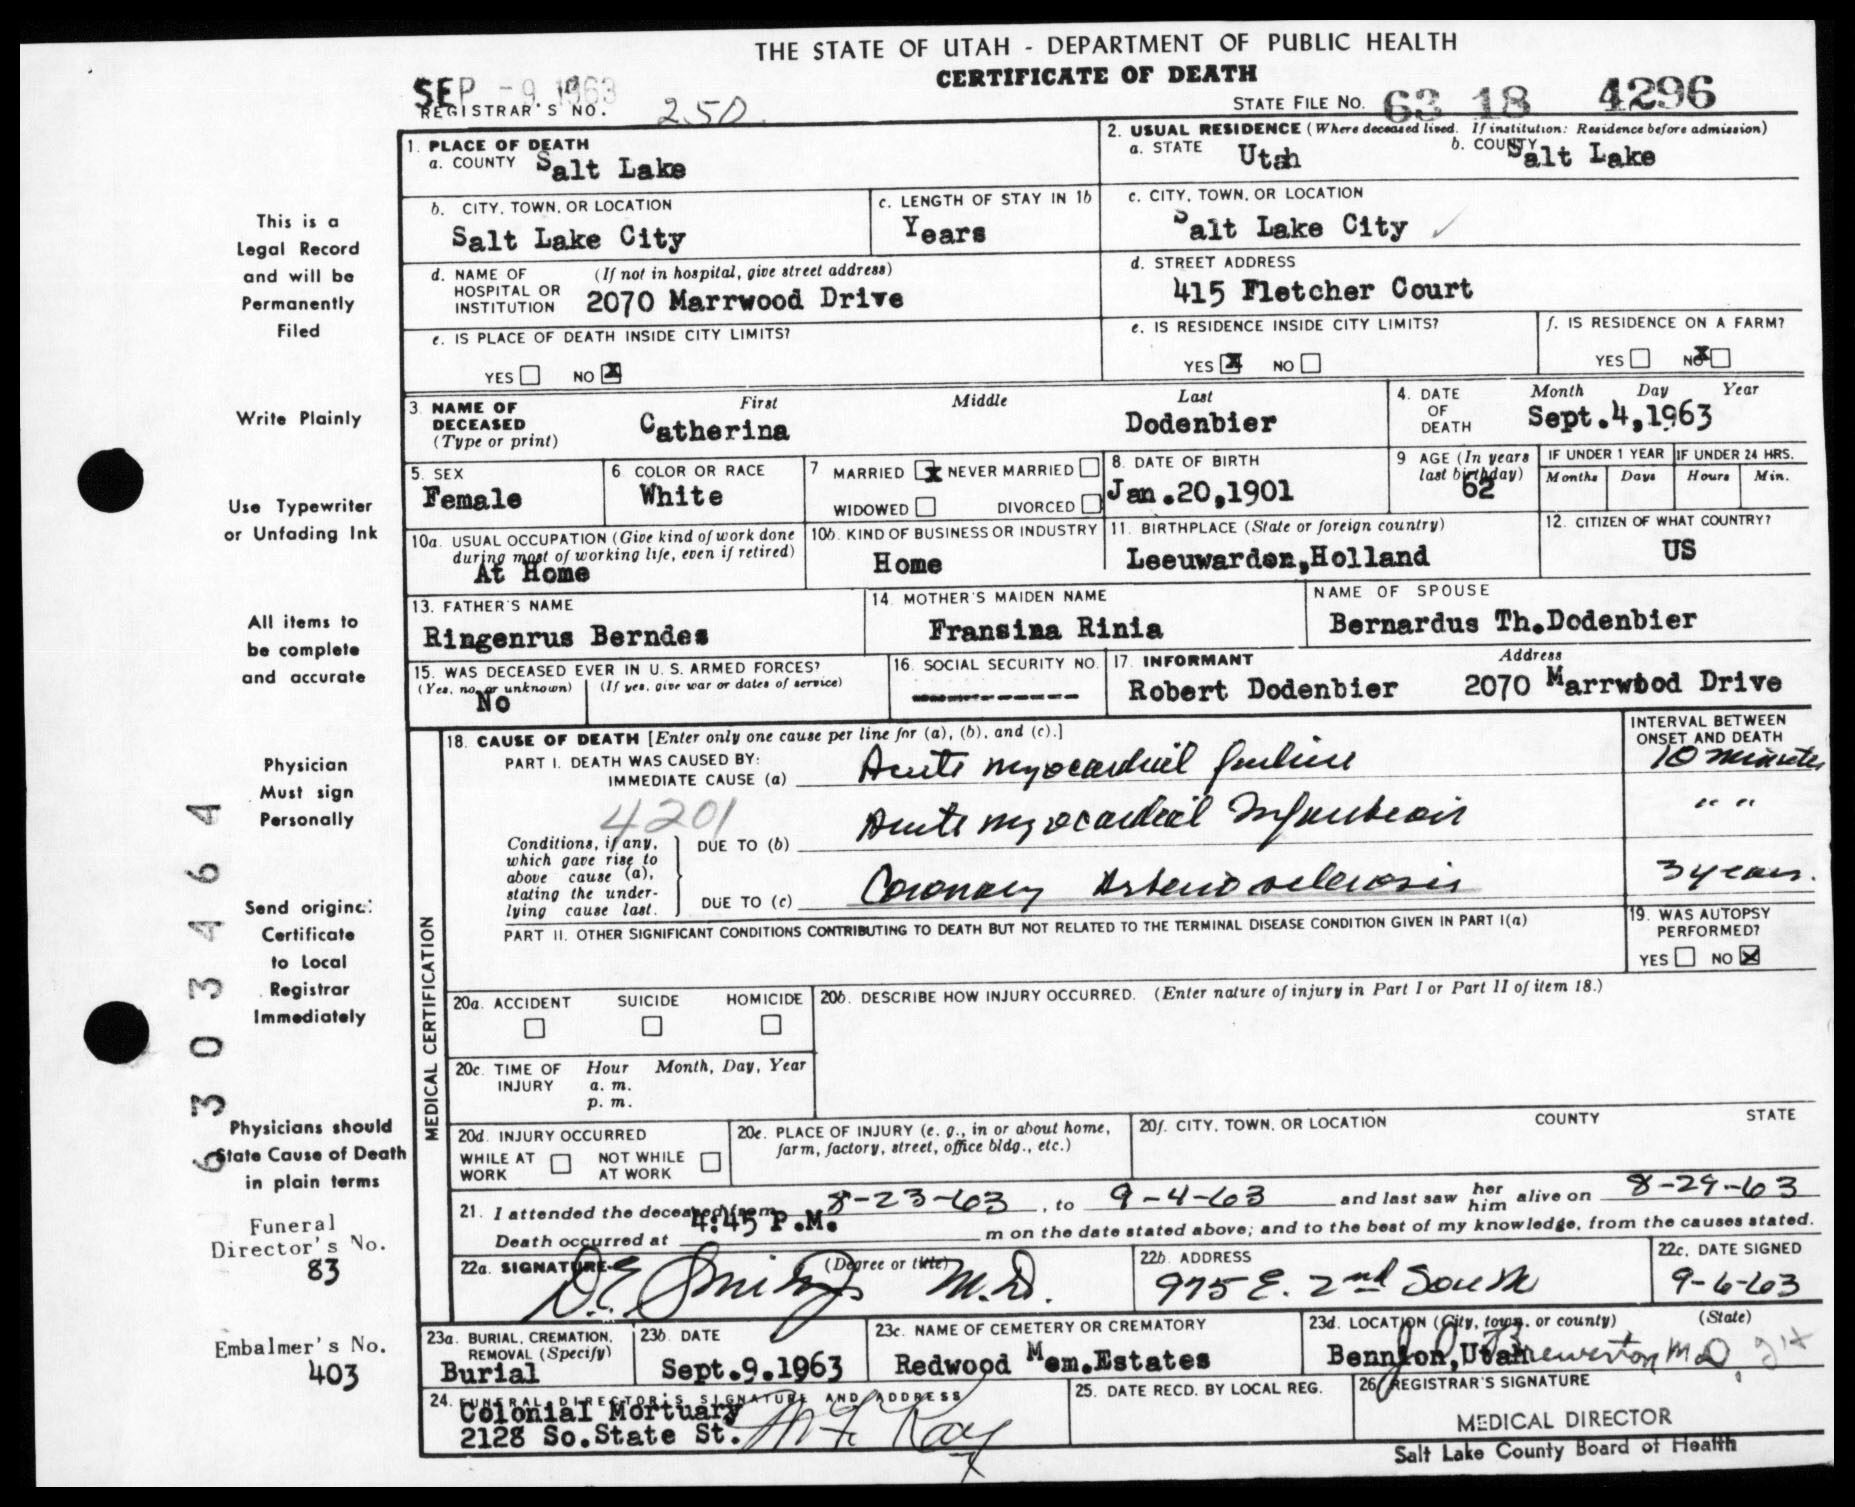 THE STATE OF UTAH - DEPARTMENT OF PUBLIC HEALTH
CERTIFICATE OF DEATH
SEP -9 1963
REGISTRAR'S NO. 250
STATE FILE NO. 63 18 4296
1. PLACE OF DEATH
a. COUNTY Salt Lake
2. USUAL RESIDENCE (Where deceased lived. If institution: Residence before admission)
a. STATE Utah b. COUNTY Salt Lake
b. CITY, TOWN, OR LOCATION
Salt Lake City
c. LENGTH OF STAY IN 1b
Years
c. CITY, TOWN, OR LOCATION
Salt Lake City
d. NAME OF HOSPITAL OR INSTITUTION (If not in hospital, give street address)
2070 Marrwood Drive
d. STREET ADDRESS
415 Fletcher Court
e. IS PLACE OF DEATH INSIDE CITY LIMITS?
YES NO X
e. IS RESIDENCE INSIDE CITY LIMITS?
YES X NO
f. IS RESIDENCE ON A FARM?
YES NO X
3. NAME OF DECEASED (Type or print)
First Middle Last
Catherina Dodenbier
4. DATE OF DEATH
Month Day Year
Sept.4,1963
5. SEX
Female
6. COLOR OR RACE
White
7. MARRIED X NEVER MARRIED
WIDOWED DIVORCED
8. DATE OF BIRTH
Jan.20,1901
9 AGE (In years last birthday)
62
IF UNDER 1 YEAR
Months Days
IF UNDER 24 HRS.
Hours Min.
10a. USUAL OCCUPATION (Give kind of work done during most of working life, even if retired)
At Home
10b. KIND OF BUSINESS OR INDUSTRY
Home
11. BIRTHPLACE (State or foreign country)
Leeuwarden,Holland
12. CITIZEN OF WHAT COUNTRY?
US
13. FATHER'S NAME
Ringenrus Berndes
14. MOTHER'S MAIDEN NAME
Fransina Rinia
NAME OF SPOUSE
Bernardus Th.Dodenbier
15. WAS DECEASED EVER IN U. S. ARMED FORCES?
(Yes, no, or unknown) (If yes, give war or dates of service)
No
16. SOCIAL SECURITY NO.
----------
17. INFORMANT Address
Robert Dodenbier 2070 Marrwood Drive
MEDICAL CERTIFICATION
18. CAUSE OF DEATH [Enter only one cause per line for (a), (b), and (c).]
INTERVAL BETWEEN ONSET AND DEATH
PART I. DEATH WAS CAUSED BY:
IMMEDIATE CAUSE (a) Acute myocardial failure 10 minutes
4201
Conditions, if any, which gave rise to above cause (a), stating the underlying cause last.
DUE TO (b) Acute myocardial Infarction " "
DUE TO (c) Coronary Arteriosclerosis 3 years.
PART II. OTHER SIGNIFICANT CONDITIONS CONTRIBUTING TO DEATH BUT NOT RELATED TO THE TERMINAL DISEASE CONDITION GIVEN IN PART I(a)
19. WAS AUTOPSY PERFORMED?
YES NO X
20a. ACCIDENT SUICIDE HOMICIDE
20b. DESCRIBE HOW INJURY OCCURRED. (Enter nature of injury in Part I or Part II of item 18.)
20c. TIME OF INJURY
Hour Month, Day, Year
a. m.
p. m.
20d. INJURY OCCURRED
WHILE AT WORK NOT WHILE AT WORK
20e. PLACE OF INJURY (e. g., in or about home, farm, factory, street, office bldg., etc.)
20f. CITY, TOWN, OR LOCATION COUNTY STATE
21. I attended the deceased from 8-23-63, to 9-4-63 and last saw her him alive on 8-29-63
Death occurred at 4:45 P.M. m on the date stated above; and to the best of my knowledge, from the causes stated.
22a. SIGNATURE (Degree or title)
D.E. Smith M.D.
22b. ADDRESS
975 E. 2nd South
22c. DATE SIGNED
9-6-63
23a. BURIAL, CREMATION, REMOVAL (Specify)
Burial
23b. DATE
Sept.9.1963
23c. NAME OF CEMETERY OR CREMATORY
Redwood Mem.Estates
23d. LOCATION (City, town, or county) (State)
Bennion,Utah
24. FUNERAL DIRECTOR'S SIGNATURE AND ADDRESS
Colonial Mortuary
2128 So.State St.
25. DATE RECD. BY LOCAL REG.
26. REGISTRAR'S SIGNATURE
M.D.
MEDICAL DIRECTOR
Salt Lake County Board of Health
This is a
Legal Record
and will be
Permanently
Filed
Write Plainly
Use Typewriter
or Unfading Ink
All items to
be complete
and accurate
Physician
Must sign
Personally
Send original
Certificate
to Local
Registrar
Immediately
Physicians should
State Cause of Death
in plain terms
Funeral
Director's No.
83
Embalmer's No.
403
6303464